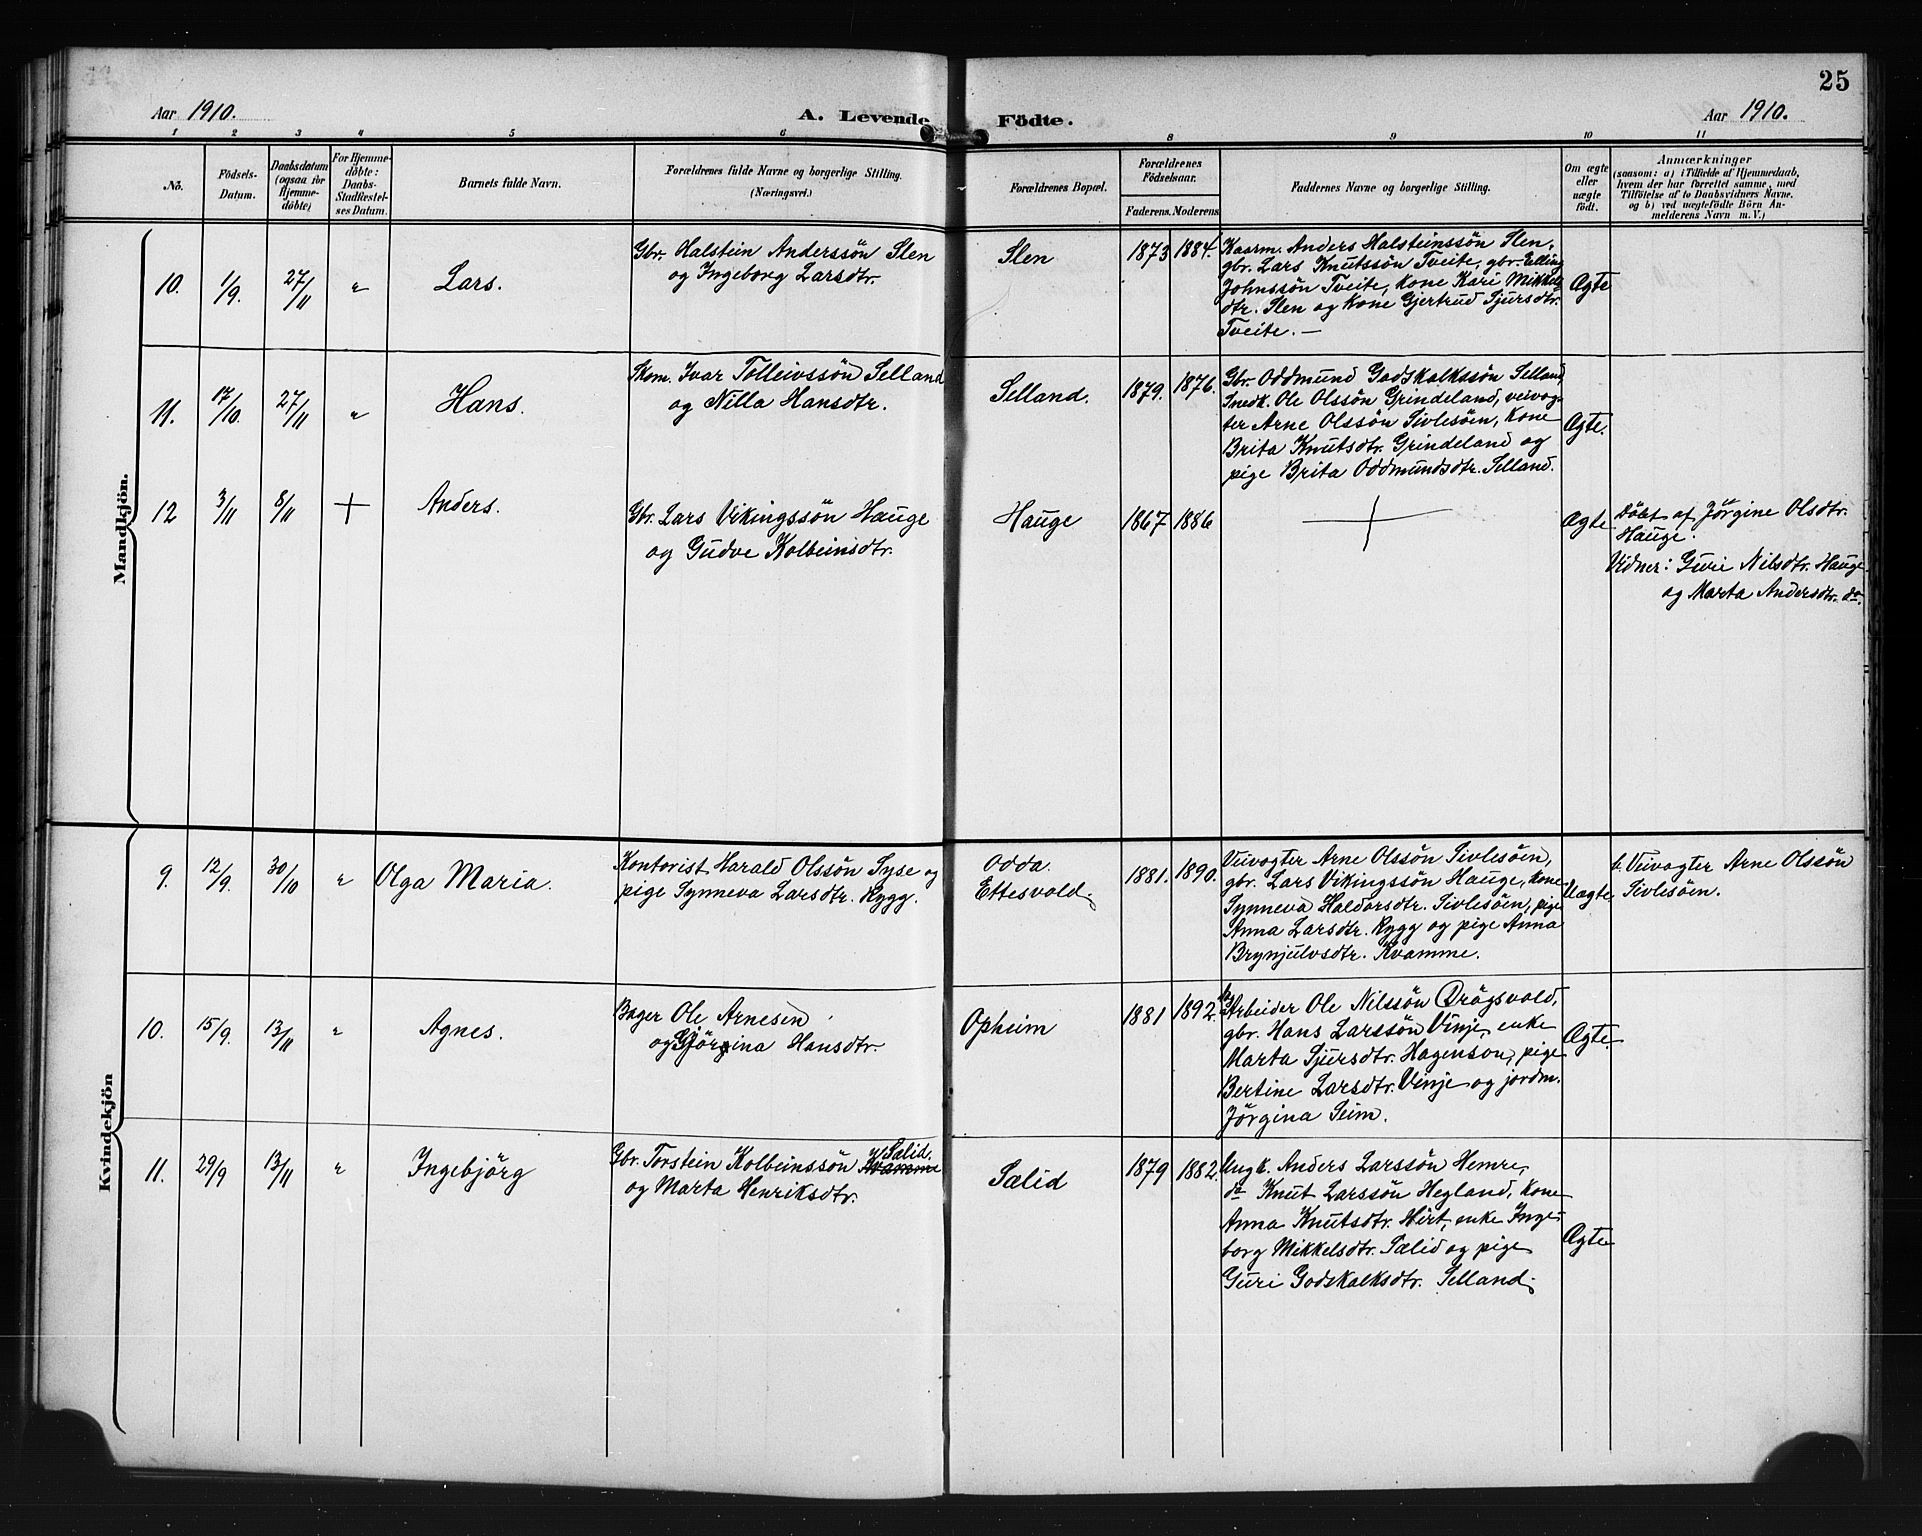 25
Aar 1910.
A. Levende Födte.
Aar 1910.
1 2 3 4 5 6 8 9 10 11
No.
Födsels-
Datum.
Daabsdatum
(ogsaa for
Hjemme-
döbte)
For Hjemme-
döbte:
Daabs-
Stadfæstel-
ses Datum.
Barnets fulde Navn.
Forældrenes fulde Navne og borgerlige Stilling.
(Næringsvei.)
Forældrenes Bopæl.
Forældrenes
Födselsaar.
Faderens. Moderens
Faddernes Navne og borgerlige Stilling.
Om ægte
eller
uægte
födt.
Anmærkninger
(saasom: a) i Tilfælde af Hjemmedaab,
hvem der har forrettet samme, med
Tilföielse af to Daabsvidners Navne,
og b) ved uægtefödte Börn An-
melderens Navn m. V.)
Mandkjön.
10. 1/9. 27/11 " Lars.
Gbr. Halstein Anderssön Slen
og Ingeborg Larsdtr.
Slen
1873 1884.
Kaarm. Anders Halsteinssön Slen,
gbr. Lars Knutssön Tveite, gbr. Elling
Johnssön Tveite, kone Kari Mikkels
dtr. Slen og kone Gjertrud Sjursdtr.
Tveite. —
Ægte
11. 17/10. 27/11 " Hans.
Skom. Ivar Tolleivssön Selland
og Nilla Hansdtr.
Selland.
1879. 1876.
Gbr. Oddmund Godskalkssön Selland,
Snedk. Ole Olssön Grindeland, veivog-
ter Arne Olssön Sivlesöen, kone
Brita Knutsdtr. Grindeland og
pige Brita Oddmundsdtr. Selland.
Ægte.
12 3/11 8/11 + Anders.
Gbr. Lars Vikingssön Hauge
og Gudve Kolbeinsdtr.
Hauge
1867 1886
+
Ægte
Döbt af Jörgine Olsdtr.
Hauge.
Vidner: Guri Nilsdtr. Hauge
og Marta Andersdtr. do.
Kvindekjön
9. 12/9. 30/10 " Olga Maria.
Kontorist Harald Olssön Syse og
pige Synneva Larsdtr. Rygg.
Odda.
Ettesvold.
1881. 1890.
Veivogter Arne Olssön Sivlesöen,
gbr. Lars Vikingssön Hauge, kone
Synneva Haldorsdtr. Sivlesöen, pige
Anna Larsdtr. Rygg og pige Anna
Brynjulvsdtr. Kvamme.
Uægte
b. Veivogter Arne Olssön
Sivlesöen.
10. 15/9. 13/11 " Agnes.
Bager Ole Arnesen
og Görgina Hansdtr.
Opheim
1881 1892.
Arbeider Ole Nilssön Drögsvold,
gbr. Hans Larssön Vinje, enke
Marta Sjursdtr. Hagenson, pige
Bertine Larsdtr. Vinje og jordm.
Jörgina Seim.
Ægte.
11. 29/9 13/11 " Ingebjörg
Gbr. Torstein Kolbeinssön Kvamme Sælid.
og Marta Henriksdtr.
Sælid
1879 1882.
Ungk. Anders Larssön Hemre,
do Knut Larssön Hegland, kone
Anna Knutsdtr. Hirt, enke Inge-
borg Mikkelsdtr. Sælid og pige
Guri Godskalksdtr. Selland.
Ægte